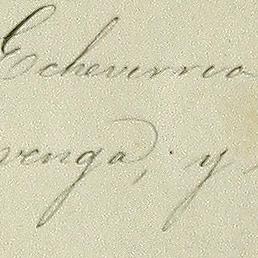 Echeverria
venga; y